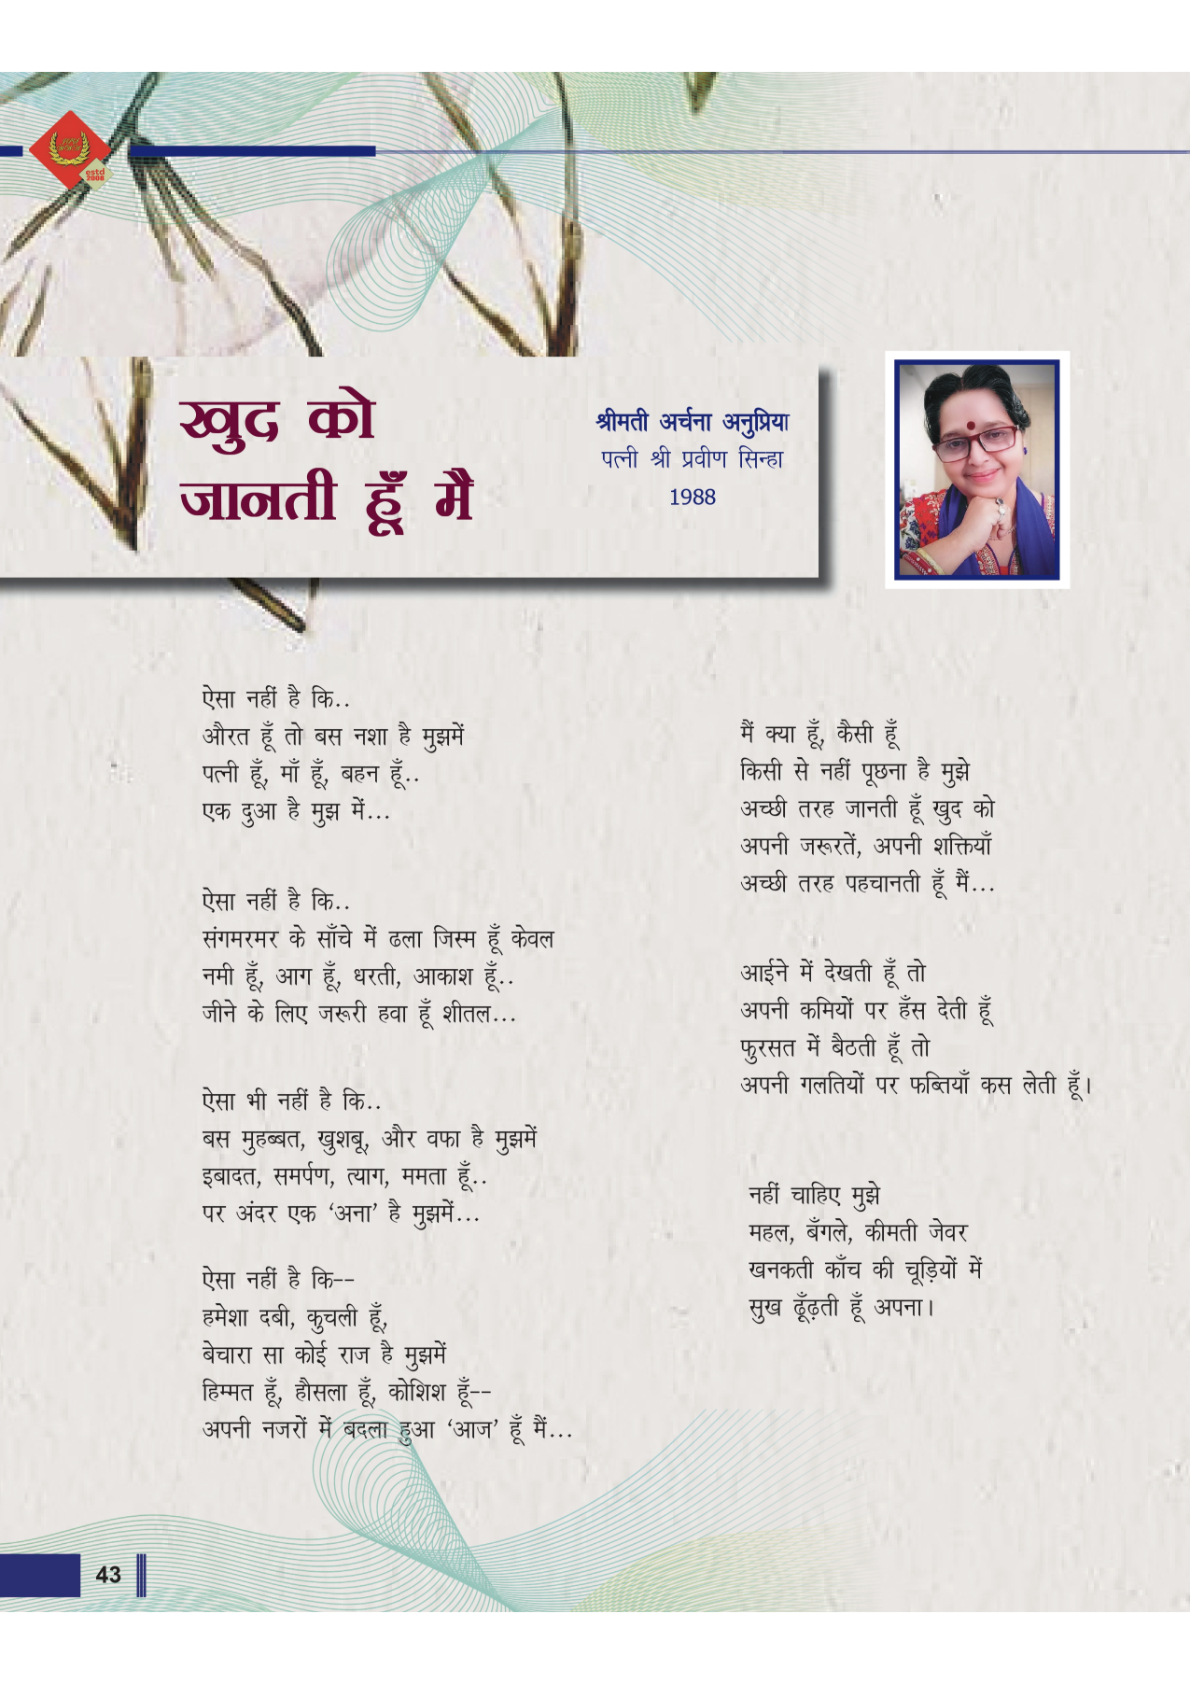 estd
2008
खुद को
जानती हूँ मै
श्रीमती अर्चना अनुप्रिया
पत्नी श्री प्रवीण सिन्हा
1988
ऐसा नहीं है कि..
औरत हूँ तो बस नशा है मुझमें
पत्नी हूँ, माँ हूँ, बहन हूँ..
एक दुआ है मुझ में...
ऐसा नहीं है कि..
संगमरमर के साँचे में ढला जिस्म हूँ केवल
नमी हूँ, आग हूँ, धरती, आकाश हूँ..
जीने के लिए जरूरी हवा हूँ शीतल...
ऐसा भी नहीं है कि..
बस मुहब्बत, खुशबू, और वफा है मुझमें
इबादत, समर्पण, त्याग, ममता हूँ..
पर अंदर एक ‘अना’ है मुझमें...
ऐसा नहीं है कि--
हमेशा दबी, कुचली हूँ,
बेचारा सा कोई राज है मुझमें
हिम्मत हूँ, हौसला हूँ, कोशिश हूँ--
अपनी नजरों में बदला हुआ ‘आज’ हूँ मैं...
मैं क्या हूँ, कैसी हूँ
किसी से नहीं पूछना है मुझे
अच्छी तरह जानती हूँ खुद को
अपनी जरूरतें, अपनी शक्तियाँ
अच्छी तरह पहचानती हूँ मैं...
आईने में देखती हूँ तो
अपनी कमियों पर हँस देती हूँ
फुरसत में बैठती हूँ तो
अपनी गलतियों पर फब्तियाँ कस लेती हूँ।
नहीं चाहिए मुझे
महल, बँगले, कीमती जेवर
खनकती काँच की चूड़ियों में
सुख ढूँढ़ती हूँ अपना।
43